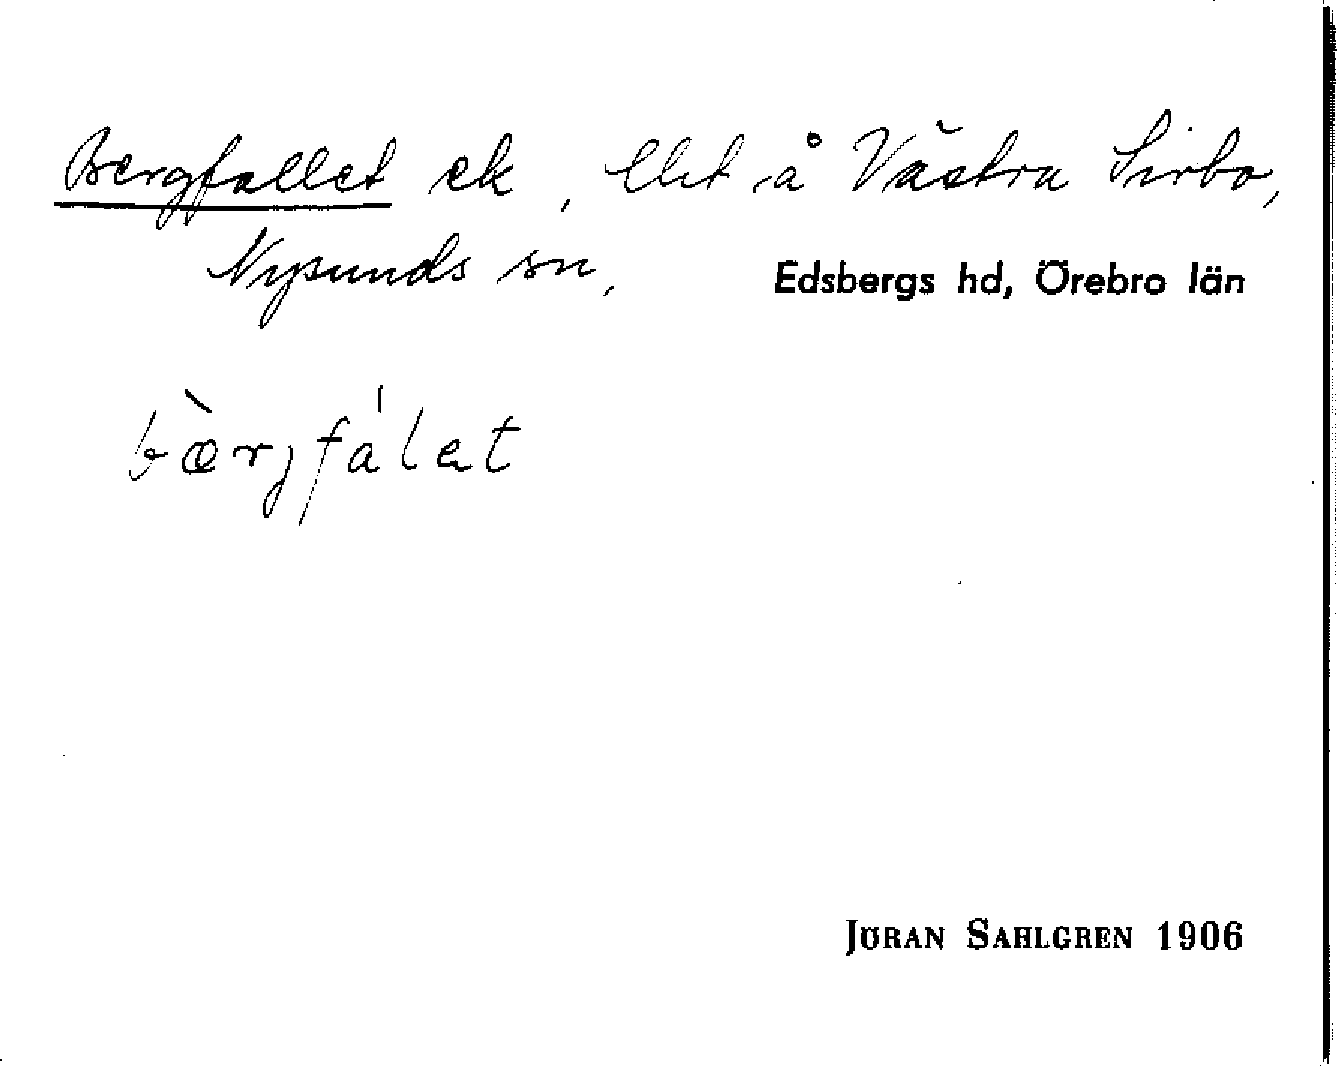 Bergfallet ek, lht å Västra Sirbo,
Nysunds sn, Edsbergs hd, Örebro län
bæ̀rjfálət
JÖRAN SAHLGREN 1906